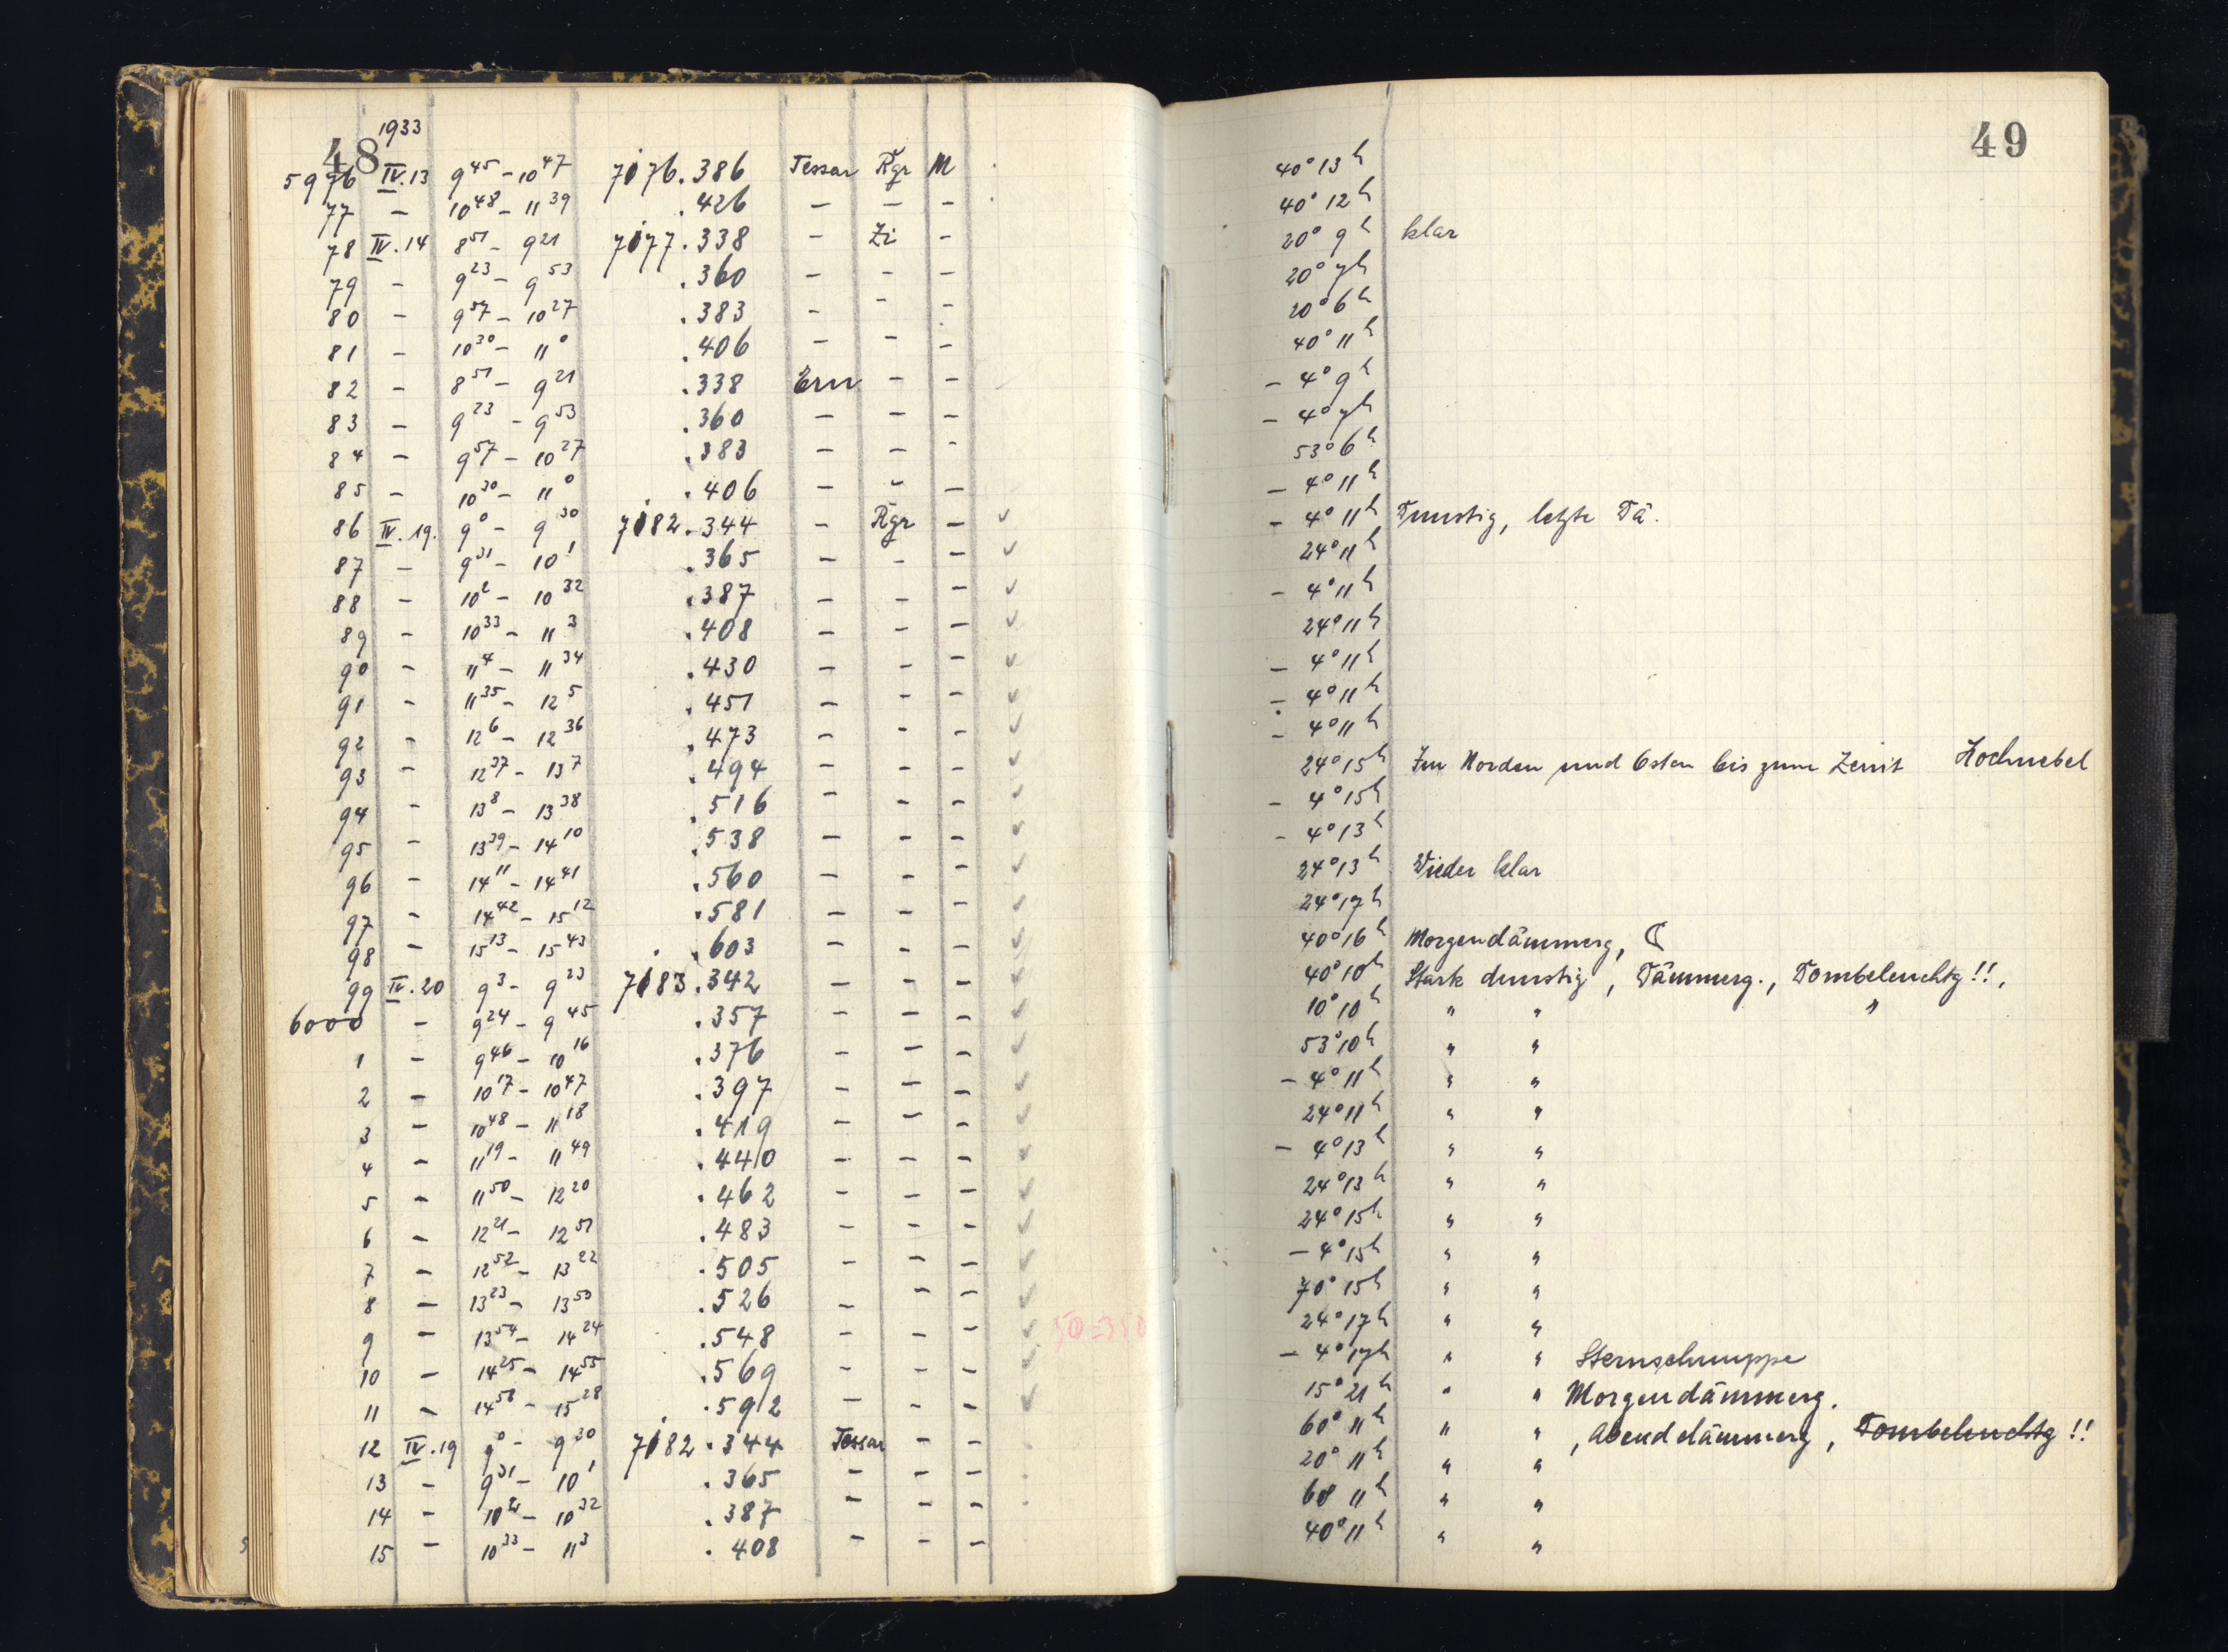 48 1933
49
5976 IV.13 9 45 – 10 47 7076.386 Tessar Rgr M 40° 13 h
77 – 10 48 – 11 39 .426 – – – 40° 12 h
78 IV.14 8 51 – 9 21 7077.338 – Zi – 20° 9 h klar
79 – 9 23 – 9 53 .360 – – – 20° 7 h
80 – 9 57 – 10 27 .383 – – – 20° 6 h
81 – 10 30 – 11 0 .406 – – – 40° 11 h
82 – 8 51 – 9 21 .338 Ern – – – 4° 9 h
83 – 9 23 – 9 53 .360 – – – – 4° 7 h
84 – 9 57 – 10 27 .383 – – – 53° 6 h
85 – 10 30 – 11 0 .406 – – – – 4° 11 h
86 IV.19. 9 0 – 9 30 7082.344 – Rgr – ✓ – 4° 11 h Dunstig, letzte Dä.
87 – 9 31 – 10 1 .365 – – – ✓ 24° 11 h
88 – 10 2 – 10 32 .387 – – – ✓ – 4° 11 h
89 – 10 33 – 11 3 .408 – – – ✓ 24° 11 h
90 – 11 4 – 11 34 .430 – – – ✓ – 4° 11 h
91 – 11 35 – 12 5 .451 – – – ✓ – 4° 11 h
92 – 12 6 – 12 36 .473 – – – ✓ – 4° 11 h
93 – 12 37 – 13 7 .494 – – – ✓ 24° 15 h Im Norden und Osten bis zum Zenit Hochnebel
94 – 13 8 – 13 38 .516 – – – ✓ – 4° 15 h
95 – 13 39 – 14 10 .538 – – – ✓ – 4° 13 h
96 – 14 11 – 14 41 .560 – – – ✓ 24° 13 h Wieder klar
97 – 14 42 – 15 12 .581 – – – ✓ 24° 17 h
98 – 15 13 – 15 43 .603 – – – ✓ 40° 16 h Morgendämmerg, ☾
99 IV.20 9 3 – 9 23 7083.342 – – – ✓ 40° 10 h Stark dunstig, Dämmerg., Dombeleuchtg!!,
6000 – 9 24 – 9 45 .357 – – – ✓ 10° 10 h " " "
1 – 9 46 – 10 16 .376 – – – ✓ 53° 10 h " "
2 – 10 17 – 10 47 .397 – – – ✓ – 4° 11 h " "
3 – 10 48 – 11 18 .419 – – – ✓ 24° 11 h " "
4 – 11 19 – 11 49 .440 – – – ✓ – 4° 13 h " "
5 – 11 50 – 12 20 .462 – – – ✓ 24° 13 h " "
6 – 12 21 – 12 51 .483 – – – ✓ 24° 15 h " "
7 – 12 52 – 13 22 .505 – – – ✓ – 4° 15 h " "
8 – 13 23 – 13 50 .526 – – – ✓ 70° 15 h " "
9 – 13 54 – 14 24 .548 – – – ✓ 24° 17 h " "
10 – 14 25 – 14 55 .569 – – – ✓ – 4° 17 h " " Sternschnuppe
11 – 14 58 – 15 28 .592 – – – ✓ 15° 21 h " " Morgendämmerg.
12 IV.19 9 0 – 9 30 7082.344 Tessar – – 60° 11 h " ", Abenddämmerg, Dombeleuchtg!!
13 – 9 31 – 10 1 .365 – – – 20° 11 h " "
14 – 10 2 – 10 32 .387 – – – 60 11 h " "
15 – 10 33 – 11 3 .408 – – – 40° 11 h " "